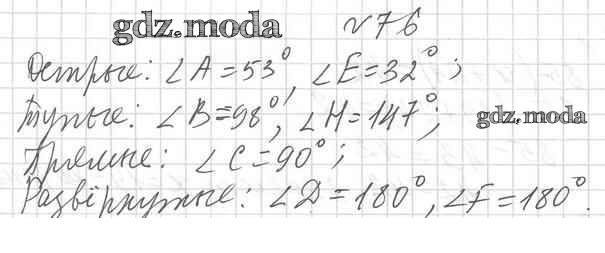 gdz.moda № 76
Острые: ∠A = 53°, ∠E = 32°;
Тупые: ∠B = 98°, ∠H = 147°; gdz.moda
Прямые: ∠C = 90°;
Развёрнутые: ∠D = 180°, ∠F = 180°.